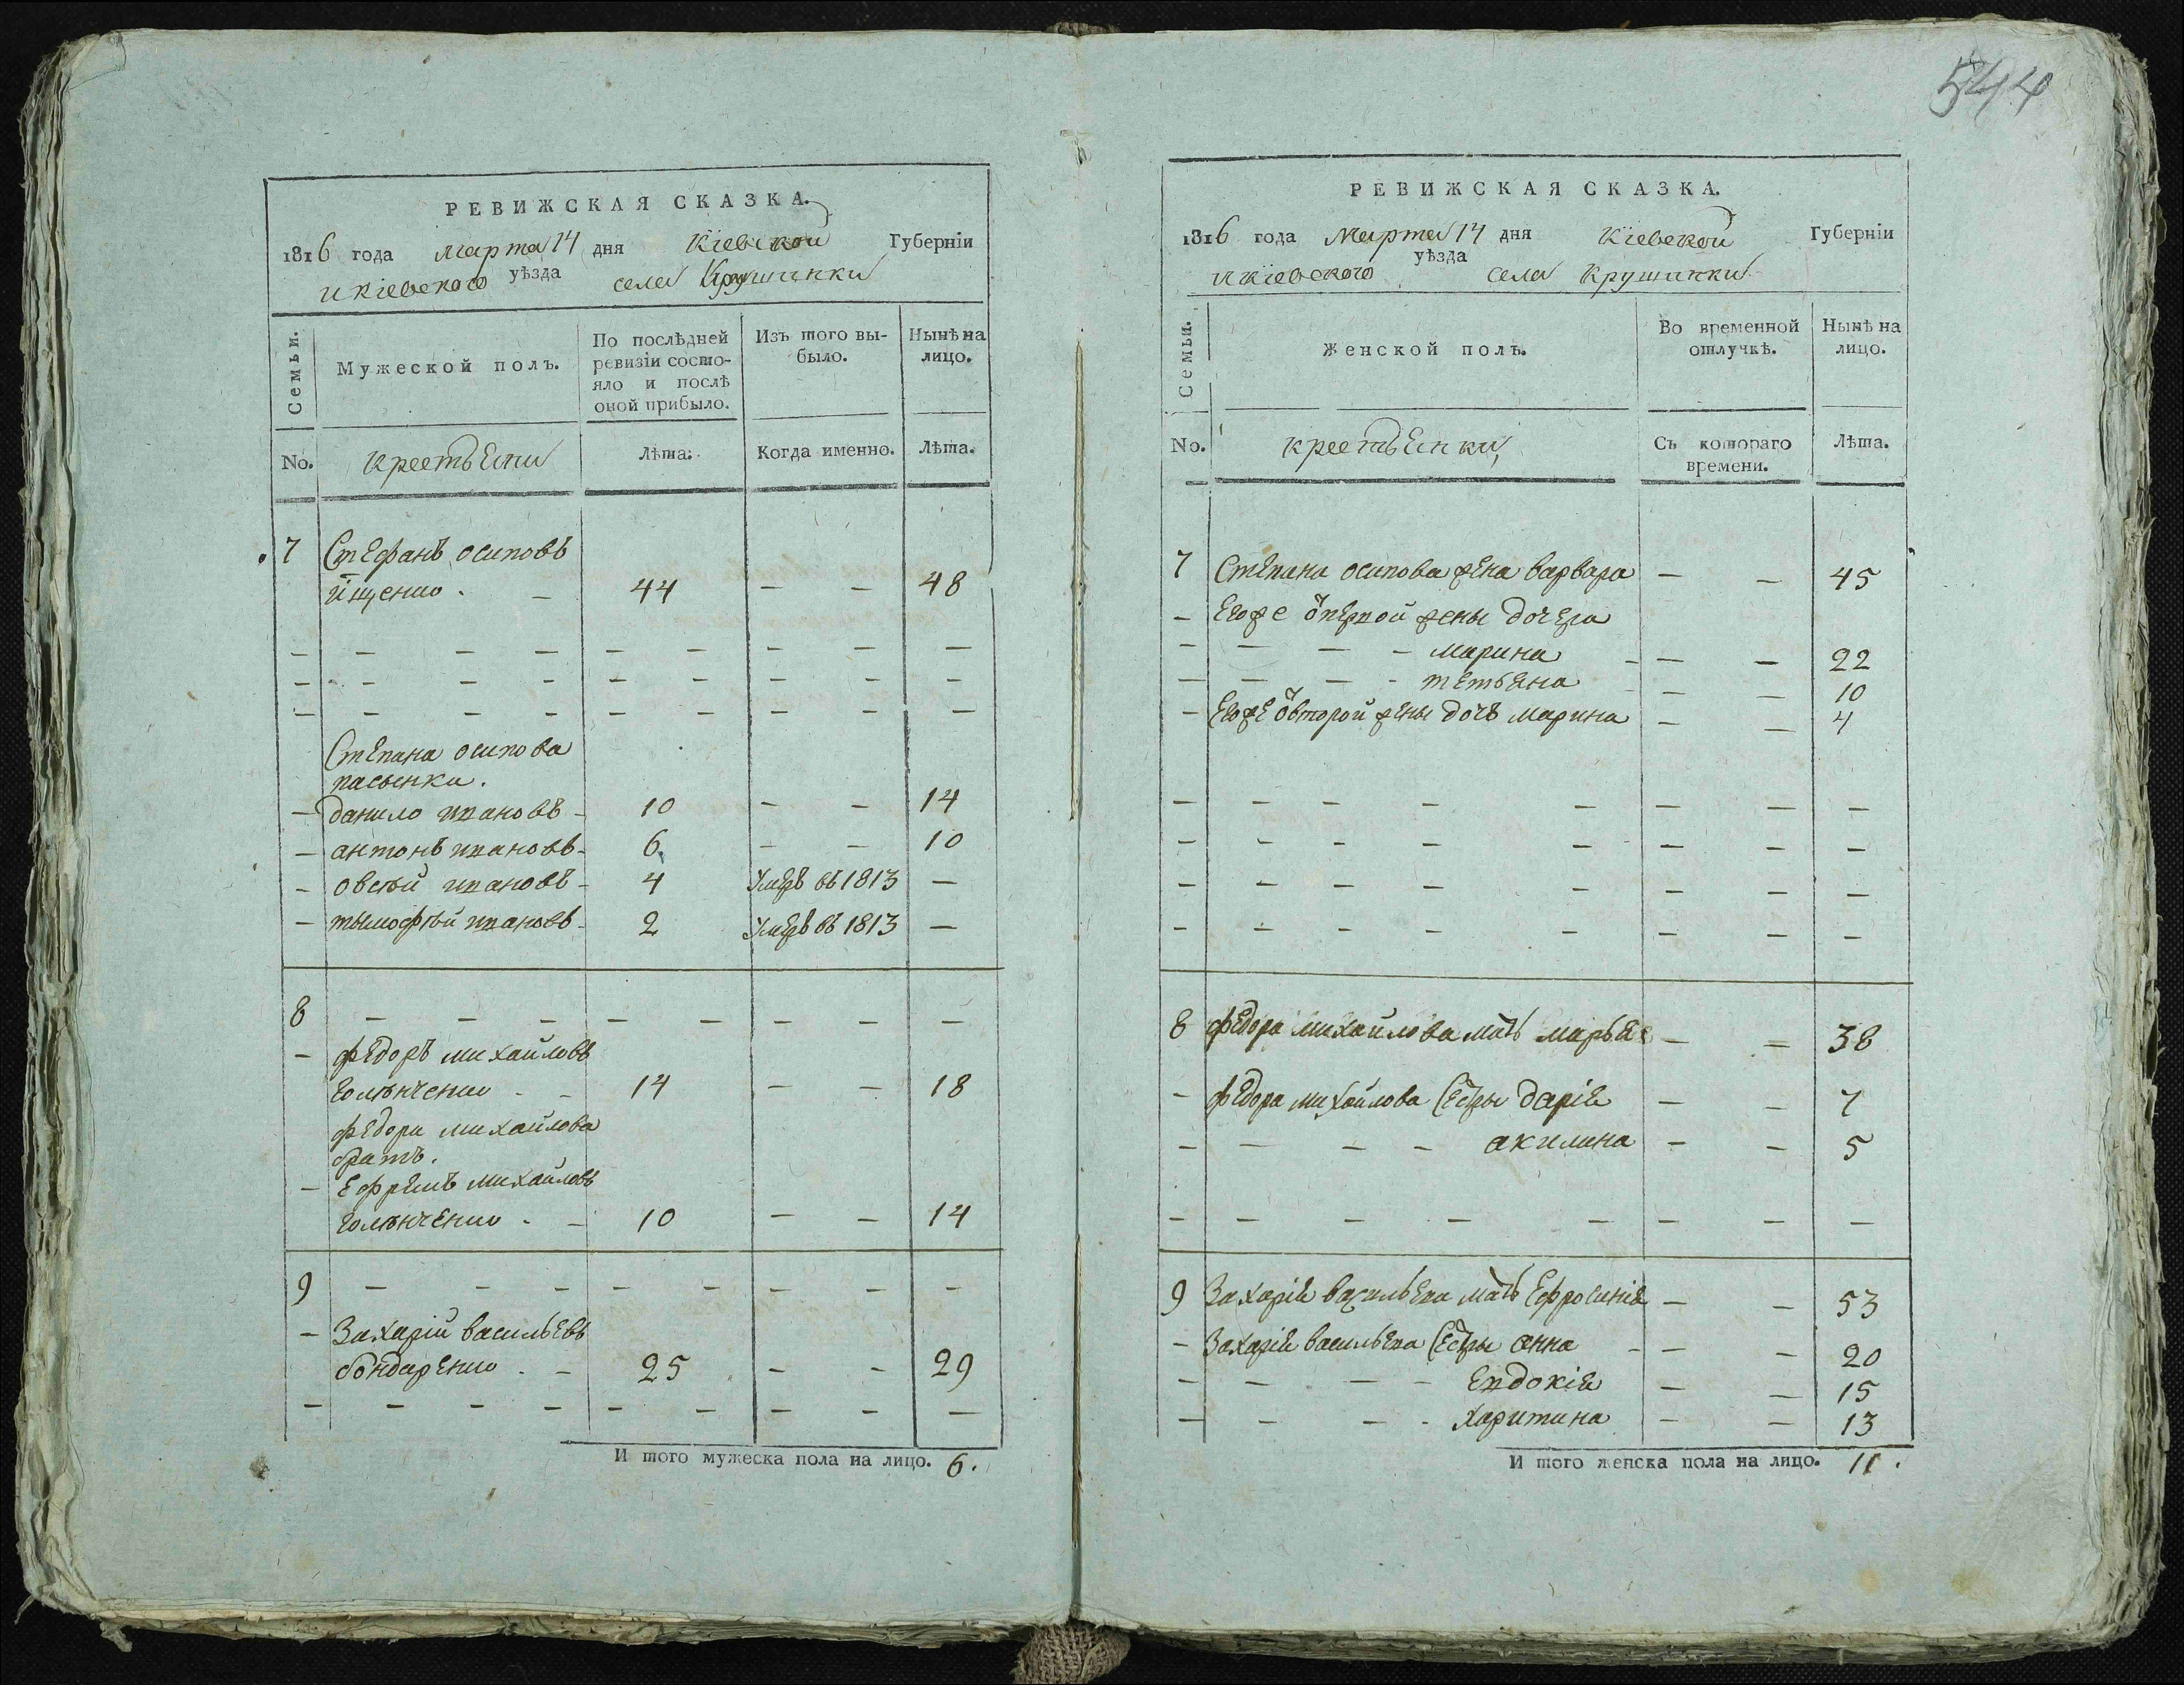 544
РЕВИЖСКАЯ СКАЗКА.
1816 года марта 14 дня Кіевской Губерніи
икіевского уѣзда села Крушинки
Семьи.
Мужеской полъ.
По послѣдней ревизіи состояло и послѣ оной прибыло.
Изъ того выбыло.
Нынѣ на лицо.
No.
крестьяни
Лѣта.
Когда именно.
Лѣта.
7 Стефанъ осиповъ
ищенко . – 44 – – 48
– – – – – – – – –
– – – – – – – – –
– – – – – – – – –
Степана осипова
пасынки.
– данило ивановъ – 10 – – 14
– антонъ ивановъ – 6. – – 10
– овсѣй ивановъ – 4 Умеръ въ 1813 –
– тымофѣй ивановъ – 2 Умеръ въ 1813 –
8 – – – – – – – –
– федоръ михайловъ
14 – – 18
федора михайлова
братъ.
– ефремъ михайловъ
10 – – 14
9 – – – – – – – –
– Захарій васильевъ
бондаренко . – 25 – – 29
– – – – – – – – –
И того мужеска пола на лицо. 6.
РЕВИЖСКАЯ СКАЗКА.
1816 года Марта 14 дня Кіевской Губерніи
икіевского уѣзда села Крушинки
Семьи.
Женской полъ.
Во временной отлучкѣ.
Нынѣ на лицо.
No.
крестьянки
Съ котораго времени.
Лѣта.
7 Степана осипова жена варвара – – 45
– Егоже ѿпервой жены дочера
– – – – марина – – – 22
– – – – тетьяна – – – 10
– Егоже ѿвторой жены дочъ марина – – 4
– – – – – – – –
– – – – – – – –
– – – – – – – –
– – – – – – – –
8 федора михайлова мать марья – – 38
– федора михайлова сестры дарія – – 7
– – – – акилина – – 5
– – – – – – – –
9 Захарія васильева мать Ефросинія – – 53
– Захарія васильева сестры анна – – – 20
– – – – Евдокія – – 15
– – – – харитина – – 13
И того женска пола на лицо. 11.